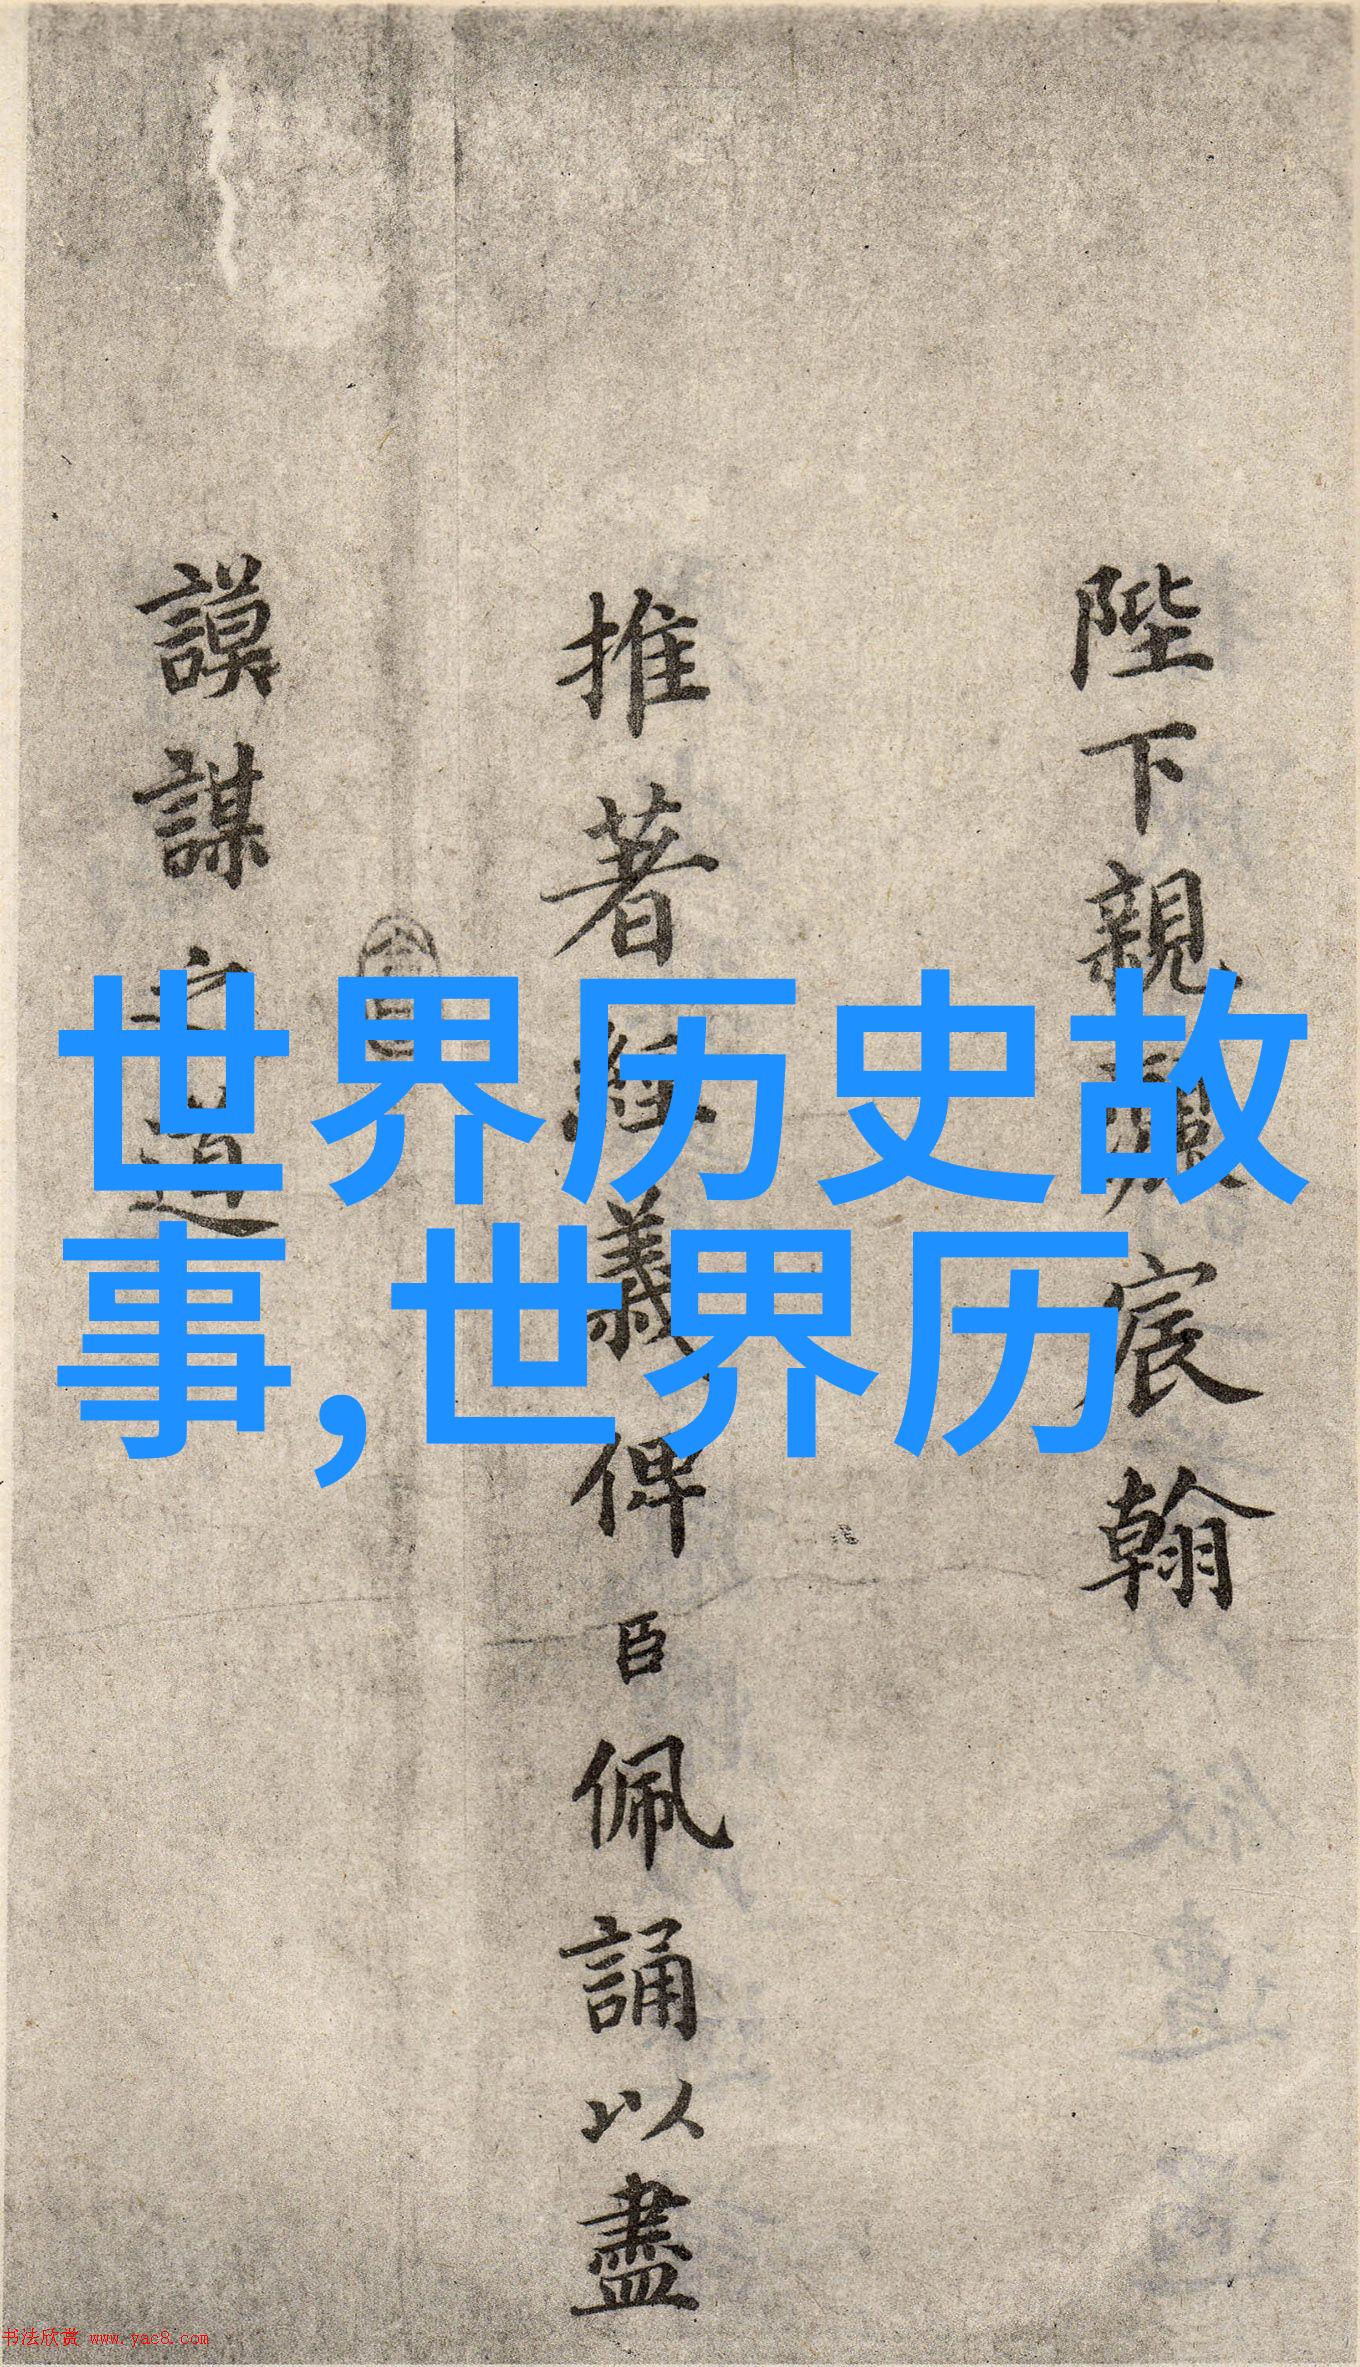 世界历史故
事,世界历
陛下親灑宸翰
推著經義俾臣佩誦以盡
謨謀之道
书法欣赏 www.yac8.com